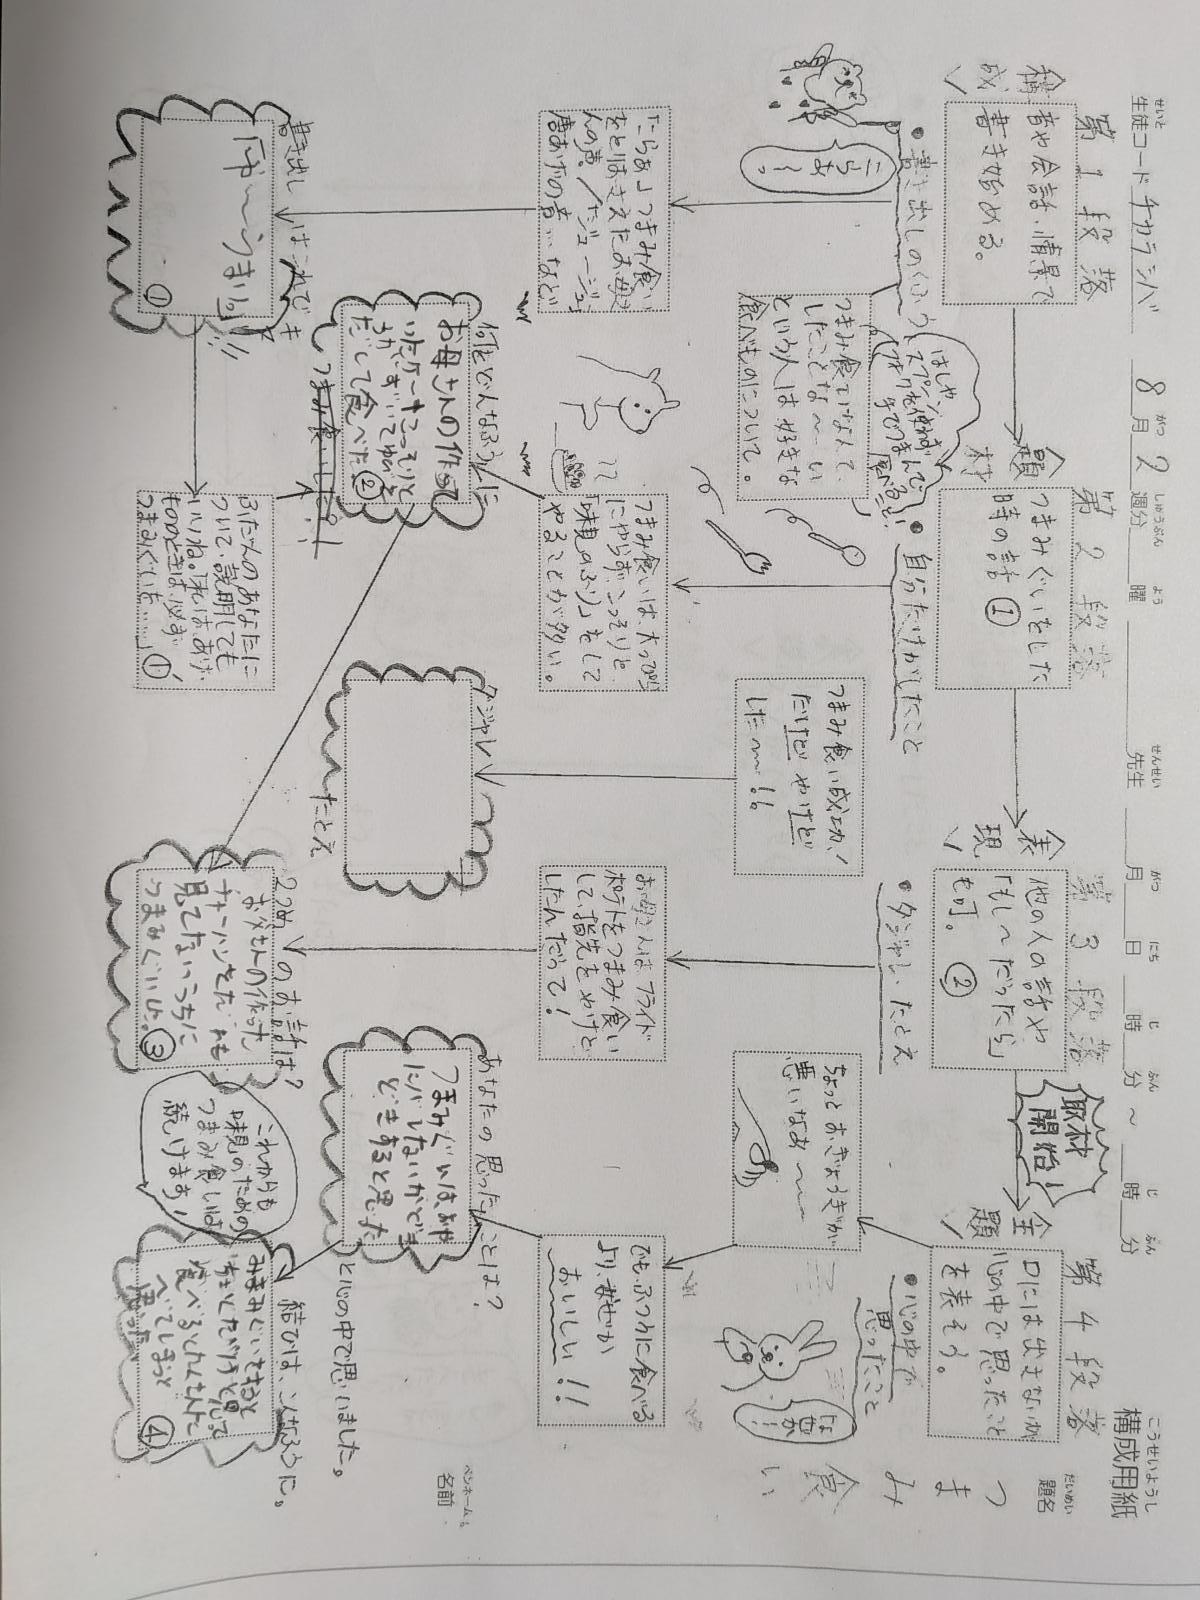 構成用紙
こうせいようし
題名
だいめい
つまみ食い
名前
ペンネームも
生徒コード チカラシバ 8月2週分 曜 先生 月 日 時 分 ～ 時 分
せいと
がつ
しゅうぶん
よう
せんせい
がつ
にち
じ
ふん
じ
ふん
第1段落
構成
音や会話・情景で
書き始める。
・書き出しのくふう
こらあ～。
「こらあ」つまみ食い
をとがめる
んの声／「ジュージュー」
唐あげの音…など
つまみ食いなんて、
したことな～い
という人は好きな
食べものについて。
はしや
スプーン、
フォークを使わず
手でつまんで
書き出しはこれでき
「ん～うまい。」
①
ふだんのあなたに
ついて、説明しても
いいね。「私はあげ
もののときは、必ず
つまみぐいを……」①'
第2段落
題材
つまみぐいをした
時の話①
・自分だけがしたこと
つまみ食いは、大っぴら
にやらず、こっそりと、
「味見のふり」をして
やることが多い。
何をどんなふうに
お母さんの作って
いたケーキをこっそりと
だして食べた②
つまみ食いした？！
第3段落
表現
他の人の話や
「もし～だったら」
も可。②
・ダジャレ・たとえ
つまみ食い成功！
だけど やけど
した～！！
ダジャレ
たとえ
お母さんはフライド
ポテトをつまみ食い
して、指先をやけど
したんだって！
2つめのお話は？
お父さんの作った
チャーハンをだれも
見てないうちに
つまみぐいした。③
取材
開始！
第4段落
主題
口には出さないが
心の中で思ったこと
を表そう。
・心の中で
思ったこと
ちょっとおぎょうぎが
悪いなあ～
でも、ふつうに食べる
より、なぜか
おいしい！！
あなたの思ったことは？
つまみぐいは、あや
と心の中で思いました。
これからも
味見のための
つまみ食いは
続けます！
結びは、こんなふうに。
④